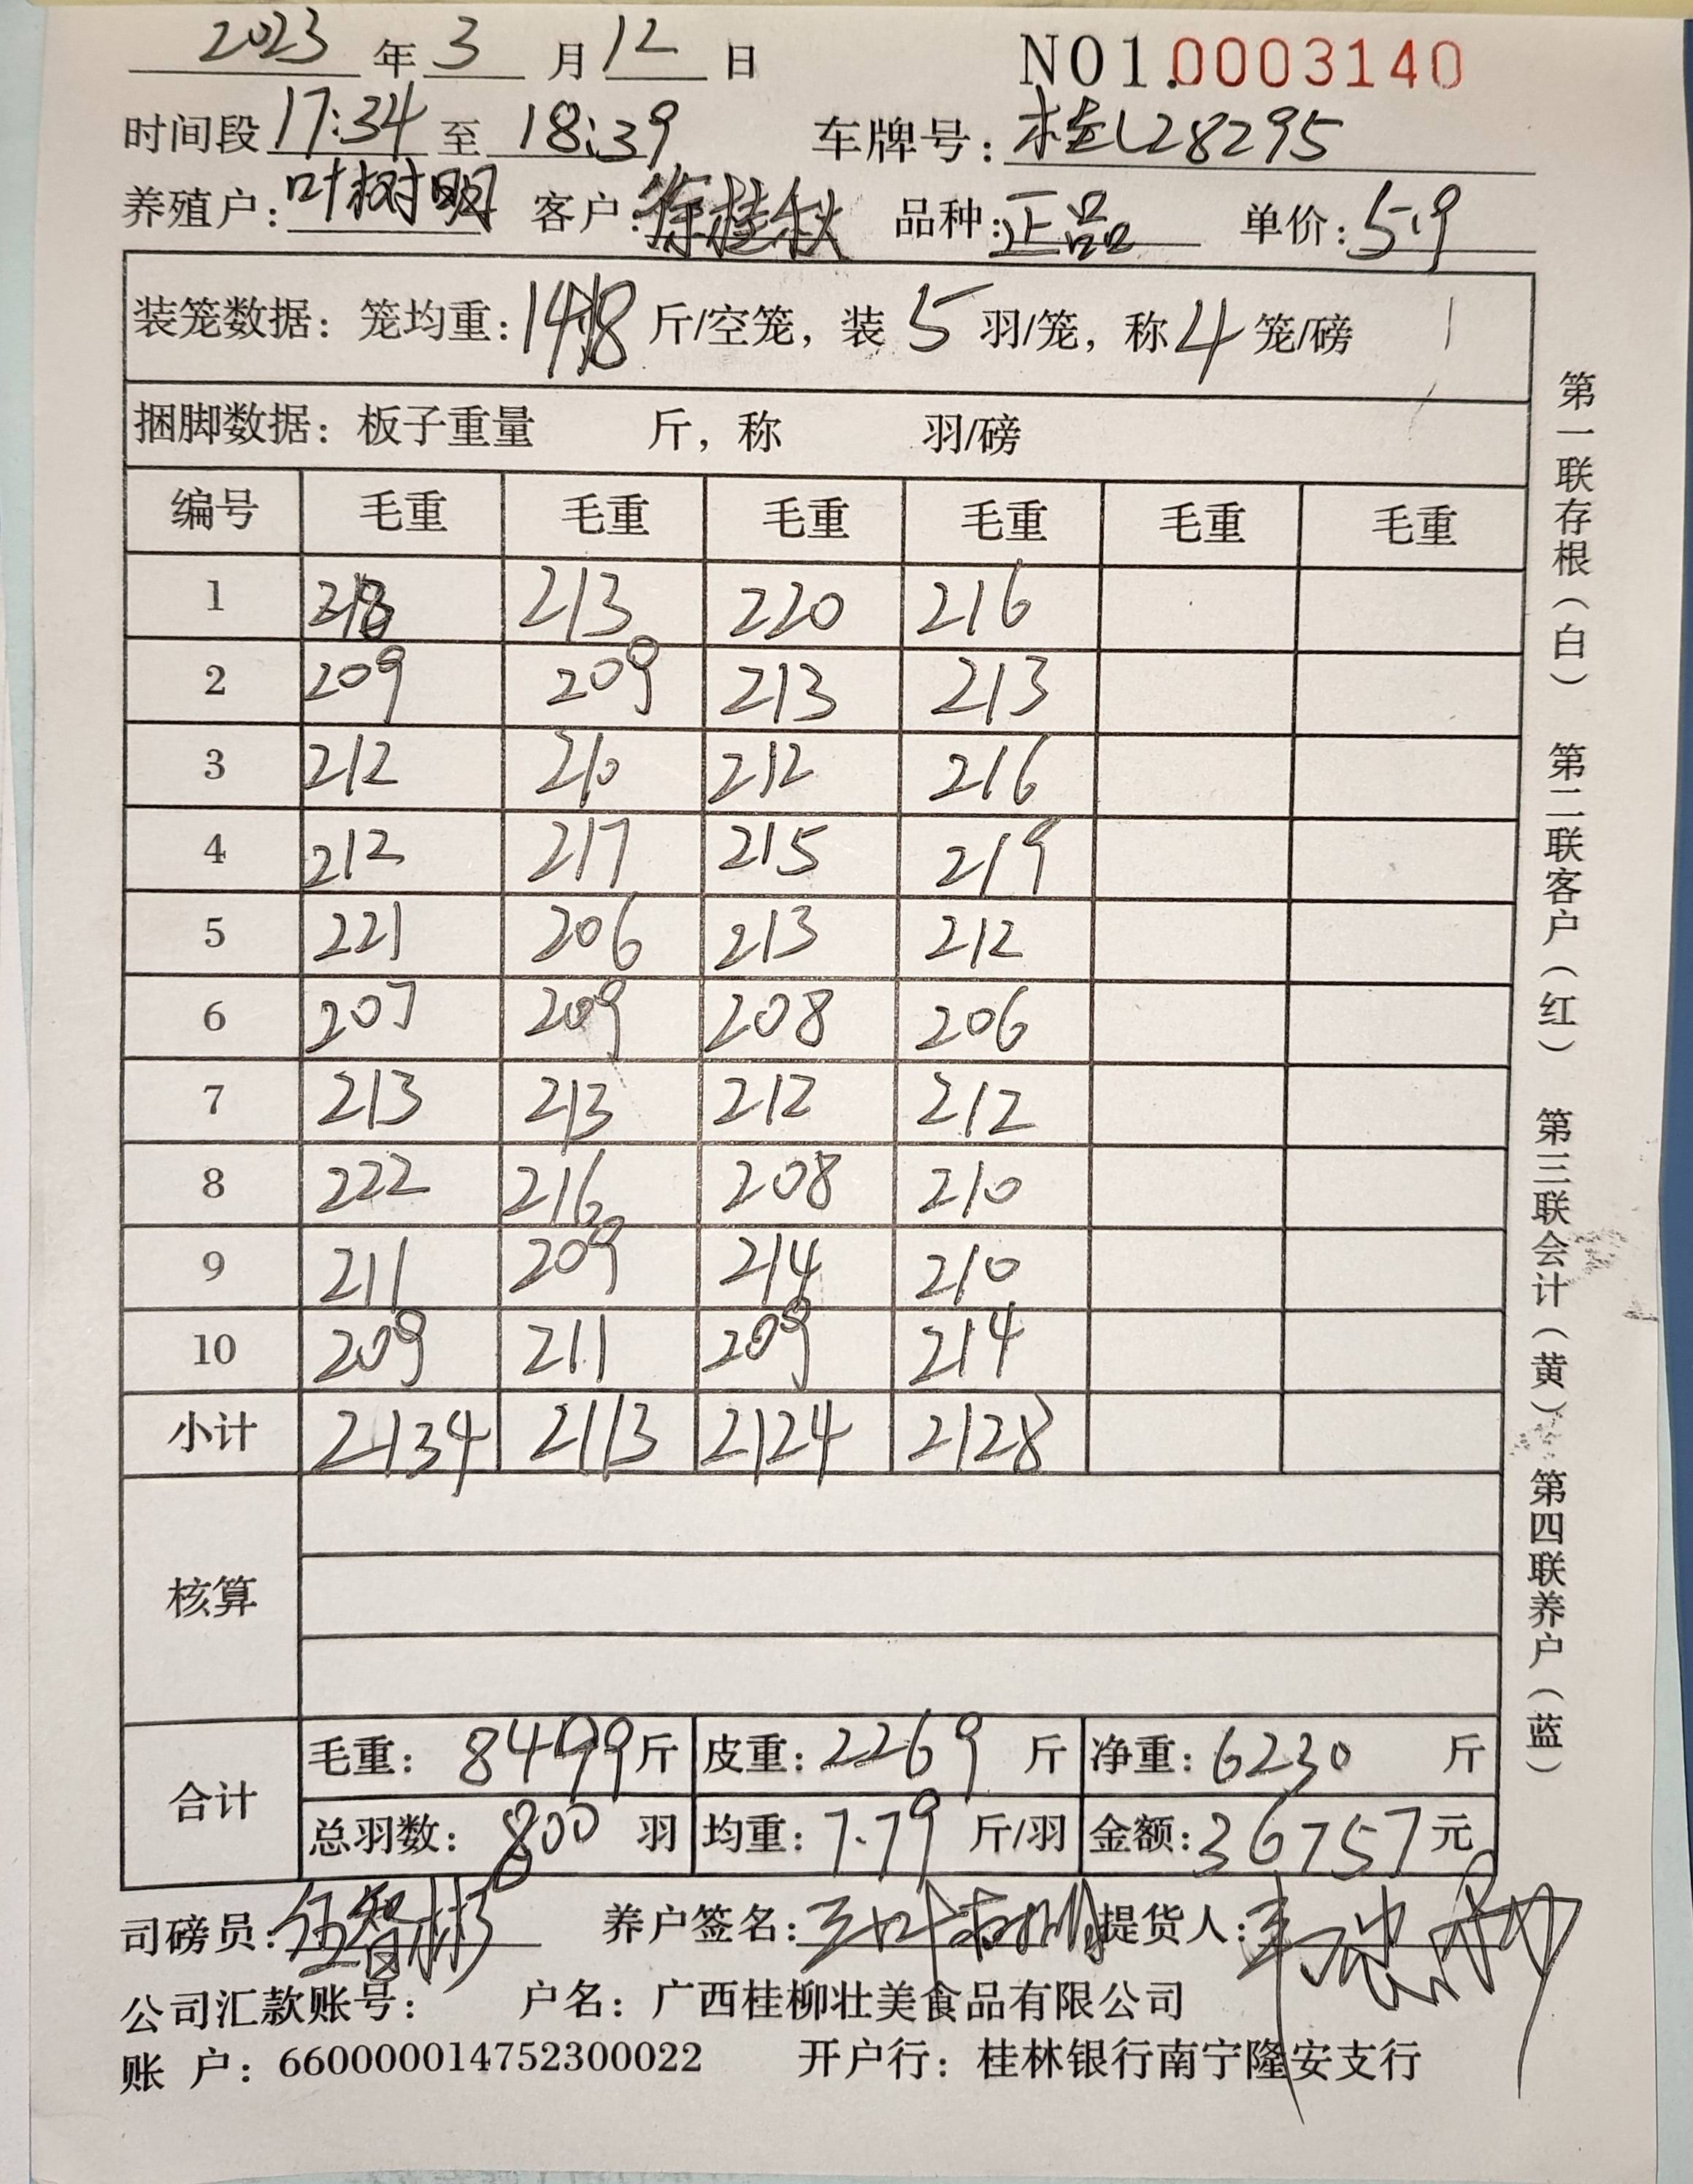 2023 年 3 月 12 日 NO1.0003140
时间段 17:34 至 18:39 车牌号: 桂L28295
养殖户: 叶树明 客户: 徐桂秋 品种: 正品 单价: 5.9
装笼数据: 笼均重: 14.18 斤/空笼, 装 5 羽/笼, 称 4 笼/磅
捆脚数据: 板子重量 斤, 称 羽/磅
编号 毛重 毛重 毛重 毛重 毛重 毛重
1 218 213 220 216
2 209 209 213 213
3 212 210 212 216
4 212 217 215 219
5 221 206 213 212
6 207 209 208 206
7 213 213 212 212
8 222 216 208 210
9 211 209 214 210
10 209 211 209 214
小计 2134 2113 2124 2128
核算
合计 毛重: 8499 斤 皮重: 2269 斤 净重: 6230 斤
总羽数: 800 羽 均重: 7.79 斤/羽 金额: 36757 元
司磅员: 伍智彬 养户签名: 提货人:
公司汇款账号: 户名: 广西桂柳壮美食品有限公司
账 户: 660000014752300022 开户行: 桂林银行南宁隆安支行
第一联存根(白) 第二联客户(红) 第三联会计(黄) 第四联养户(蓝)